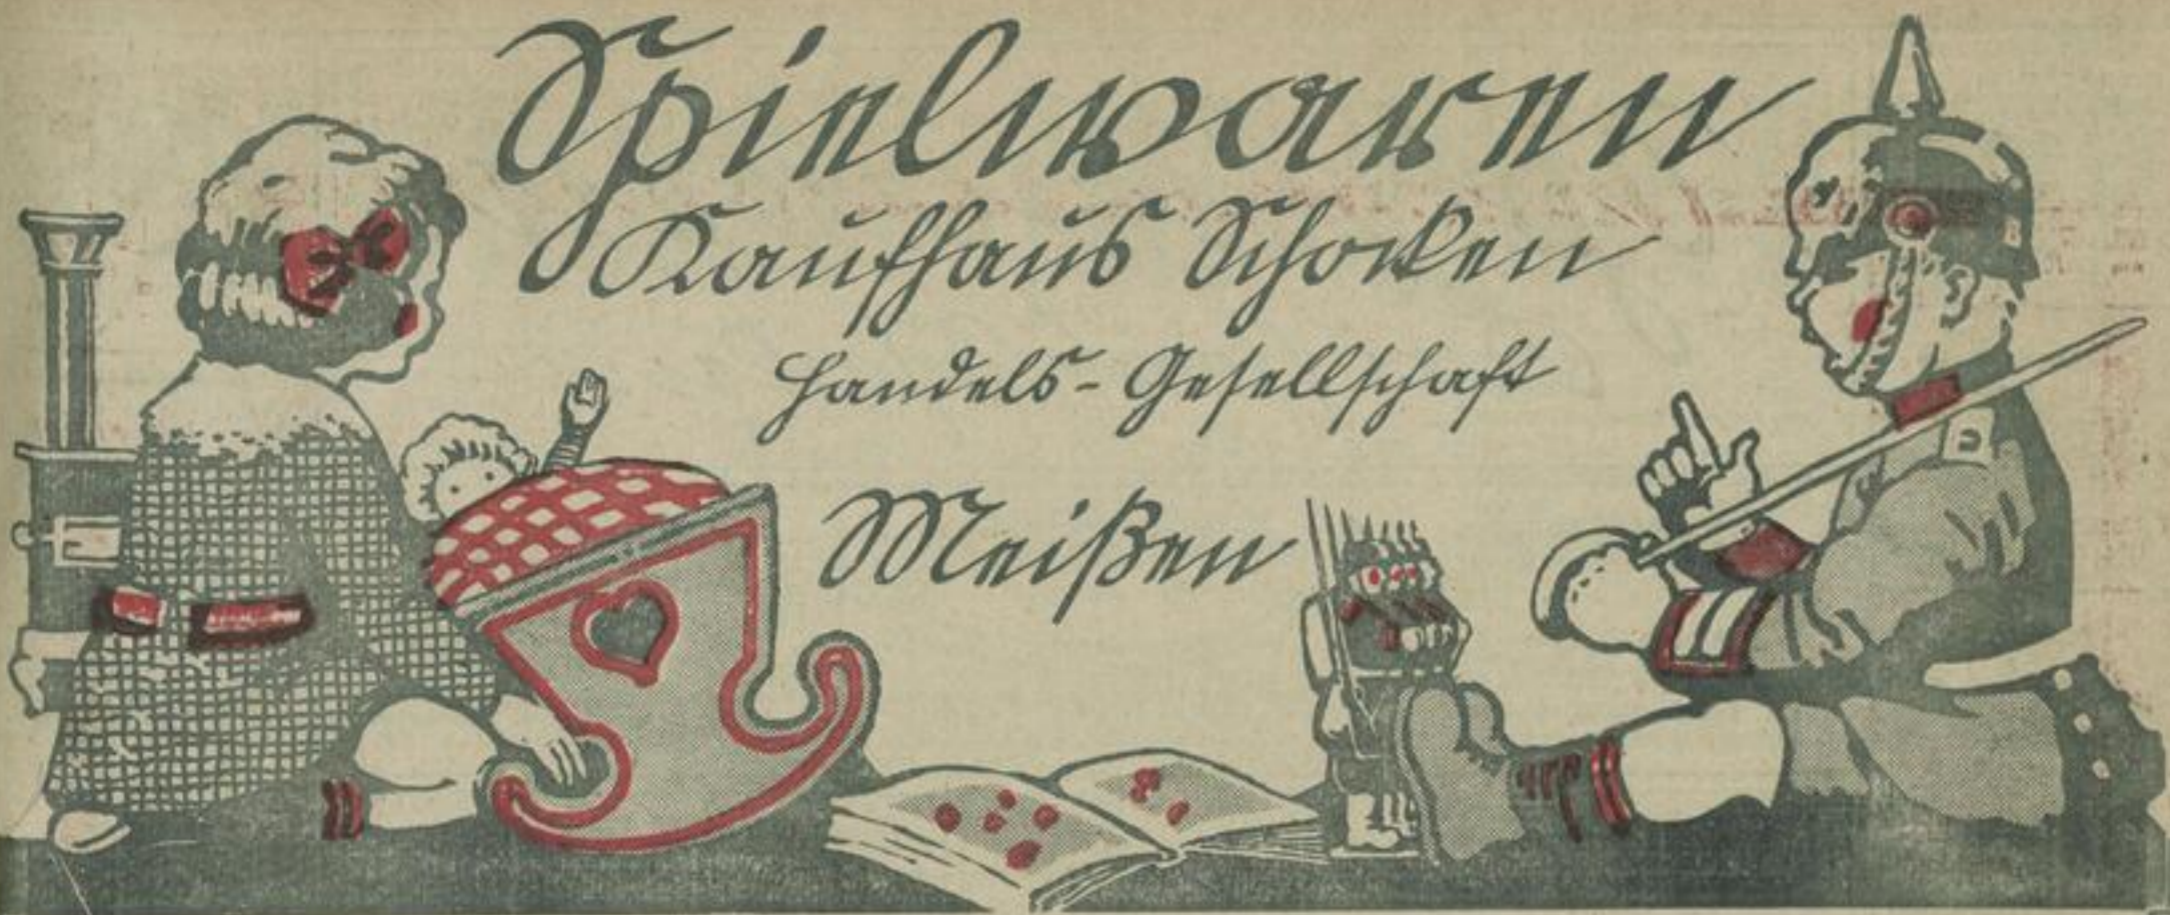 Spielwaren
Kaufhaus Schocken
Handels-Gesellschaft
Meißen